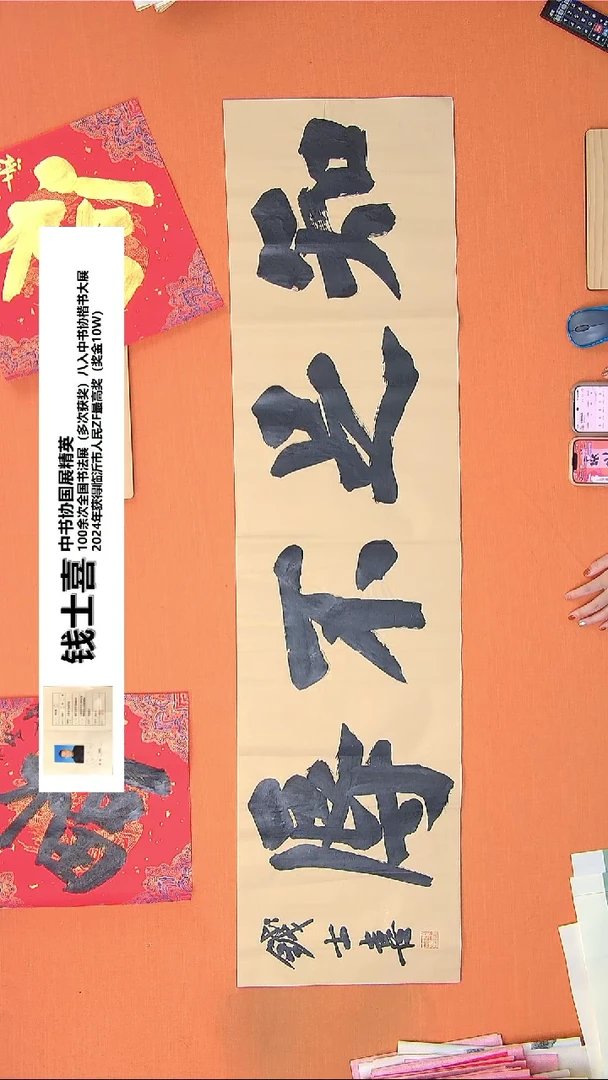 知足不辱
錢士喜
钱士喜
中书协国展精英
100余次全国书法展（多次获奖）八入中书协楷书大展
2024年获得临沂市人民ZF最高奖（奖金10W）